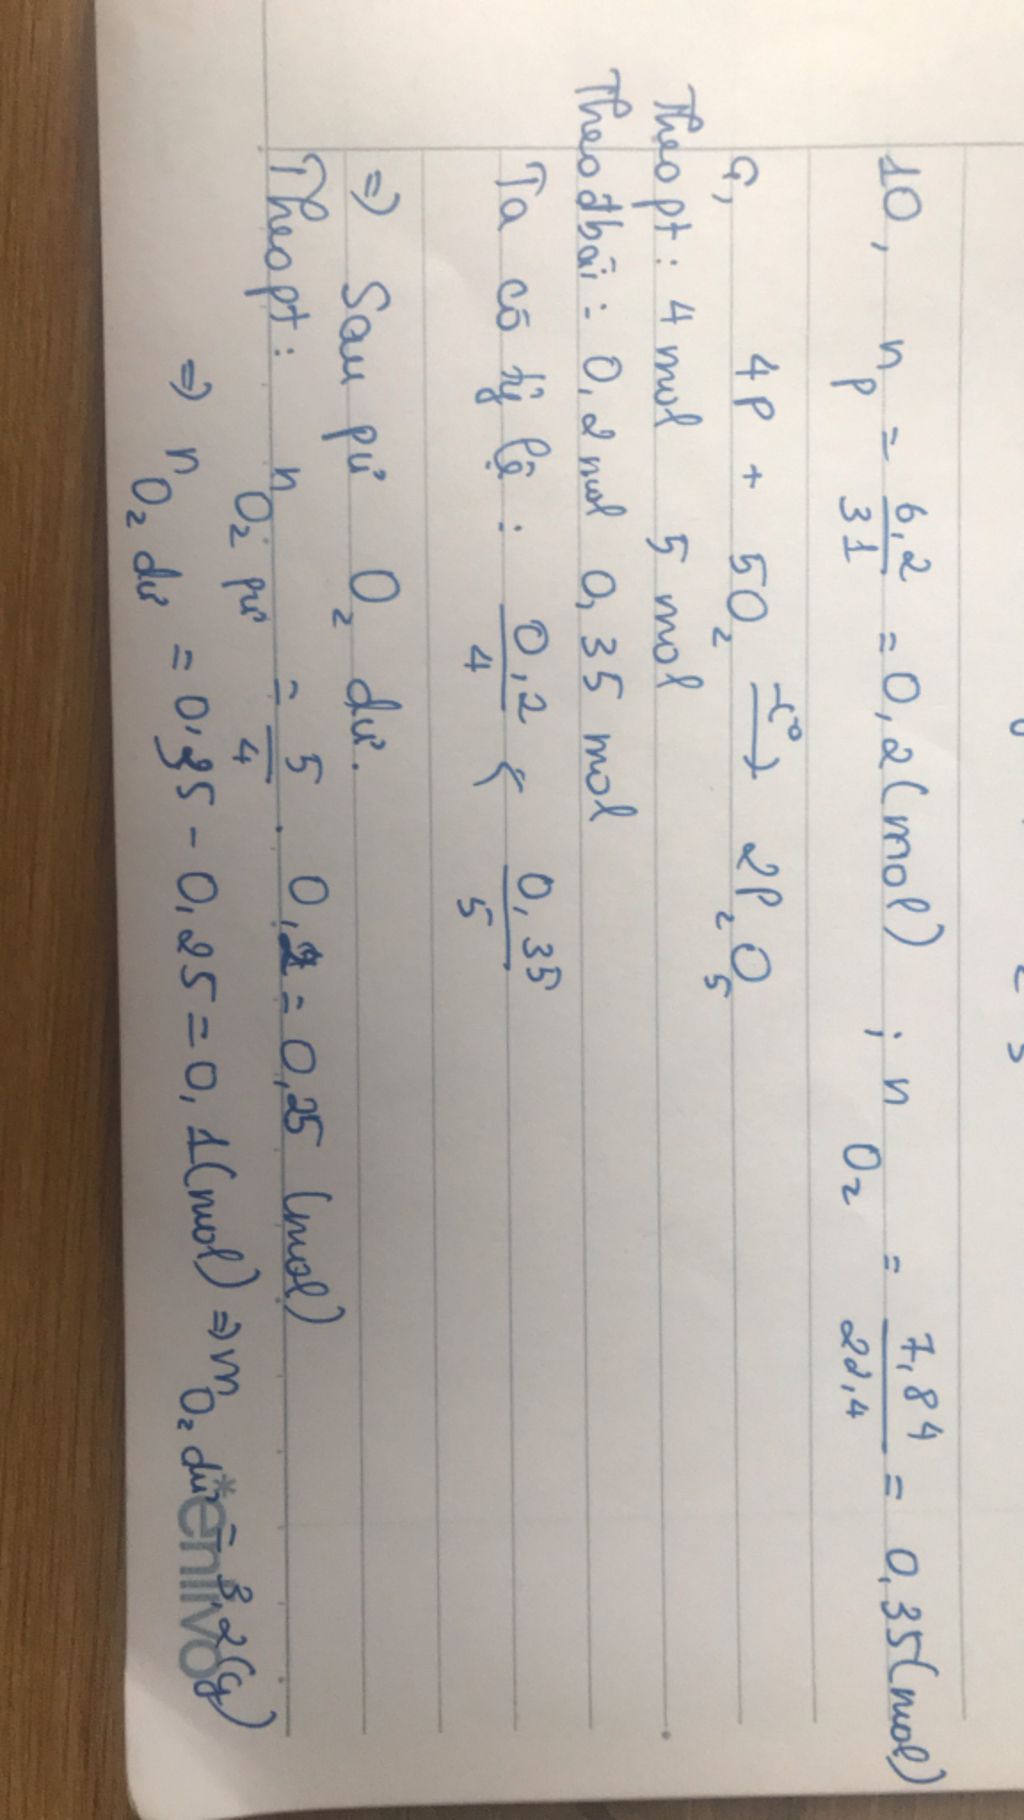 10, n P = 6,2/31 = 0,2 (mol) ; n O₂ = 7,84/22,4 = 0,35 (mol)
G, 4P + 5O₂ —t°→ 2P₂O₅
Theo pt: 4 mol 5 mol
Theo đbài: 0,2 mol 0,35 mol
Ta có tỷ lệ: 0,2/4 < 0,35/5
⇒ Sau pư O₂ dư.
Theo pt: n O₂ pư = 5/4 . 0,2 = 0,25 (mol)
⇒ n O₂ dư = 0,35 - 0,25 = 0,1 (mol) ⇒ m O₂ dư = 3,2 (g)